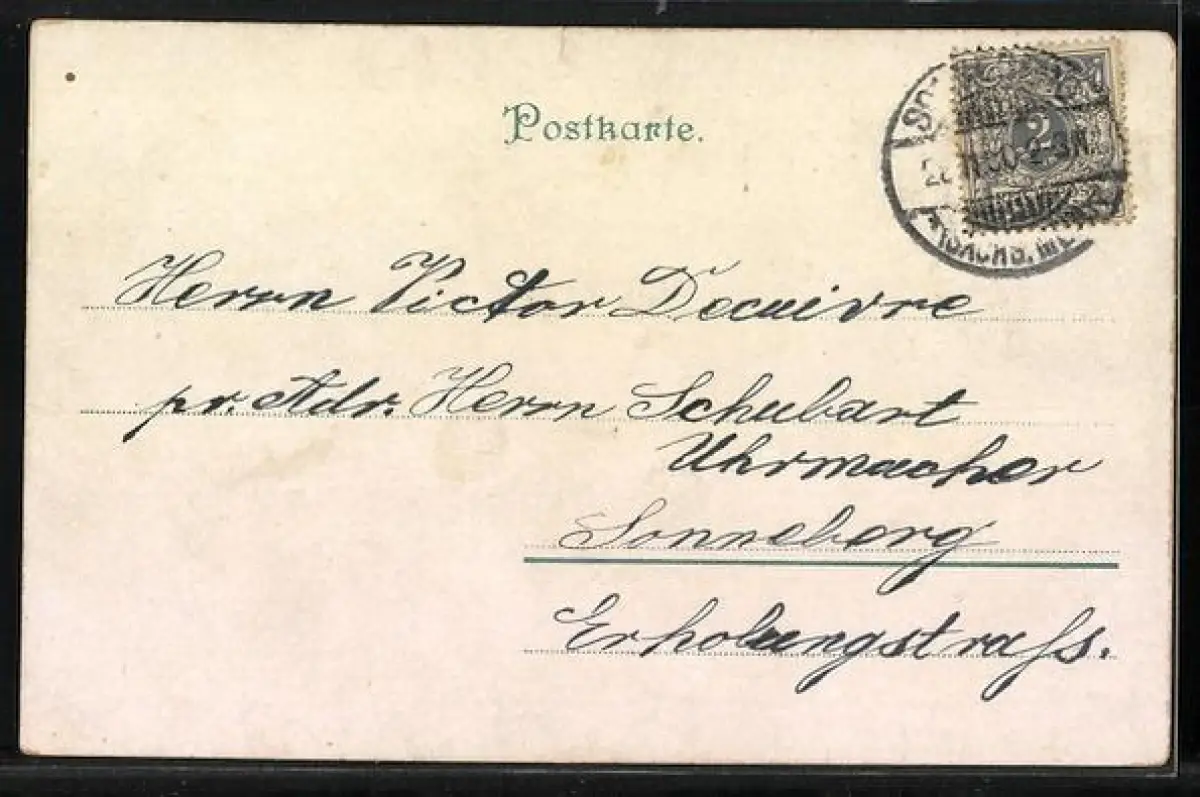 Postkarte.
2
(SACHS.
Herrn Victor Decuivre
pr. Adr. Herrn Schubart
Uhrmacher
Sonneberg
Erholungstrafs.